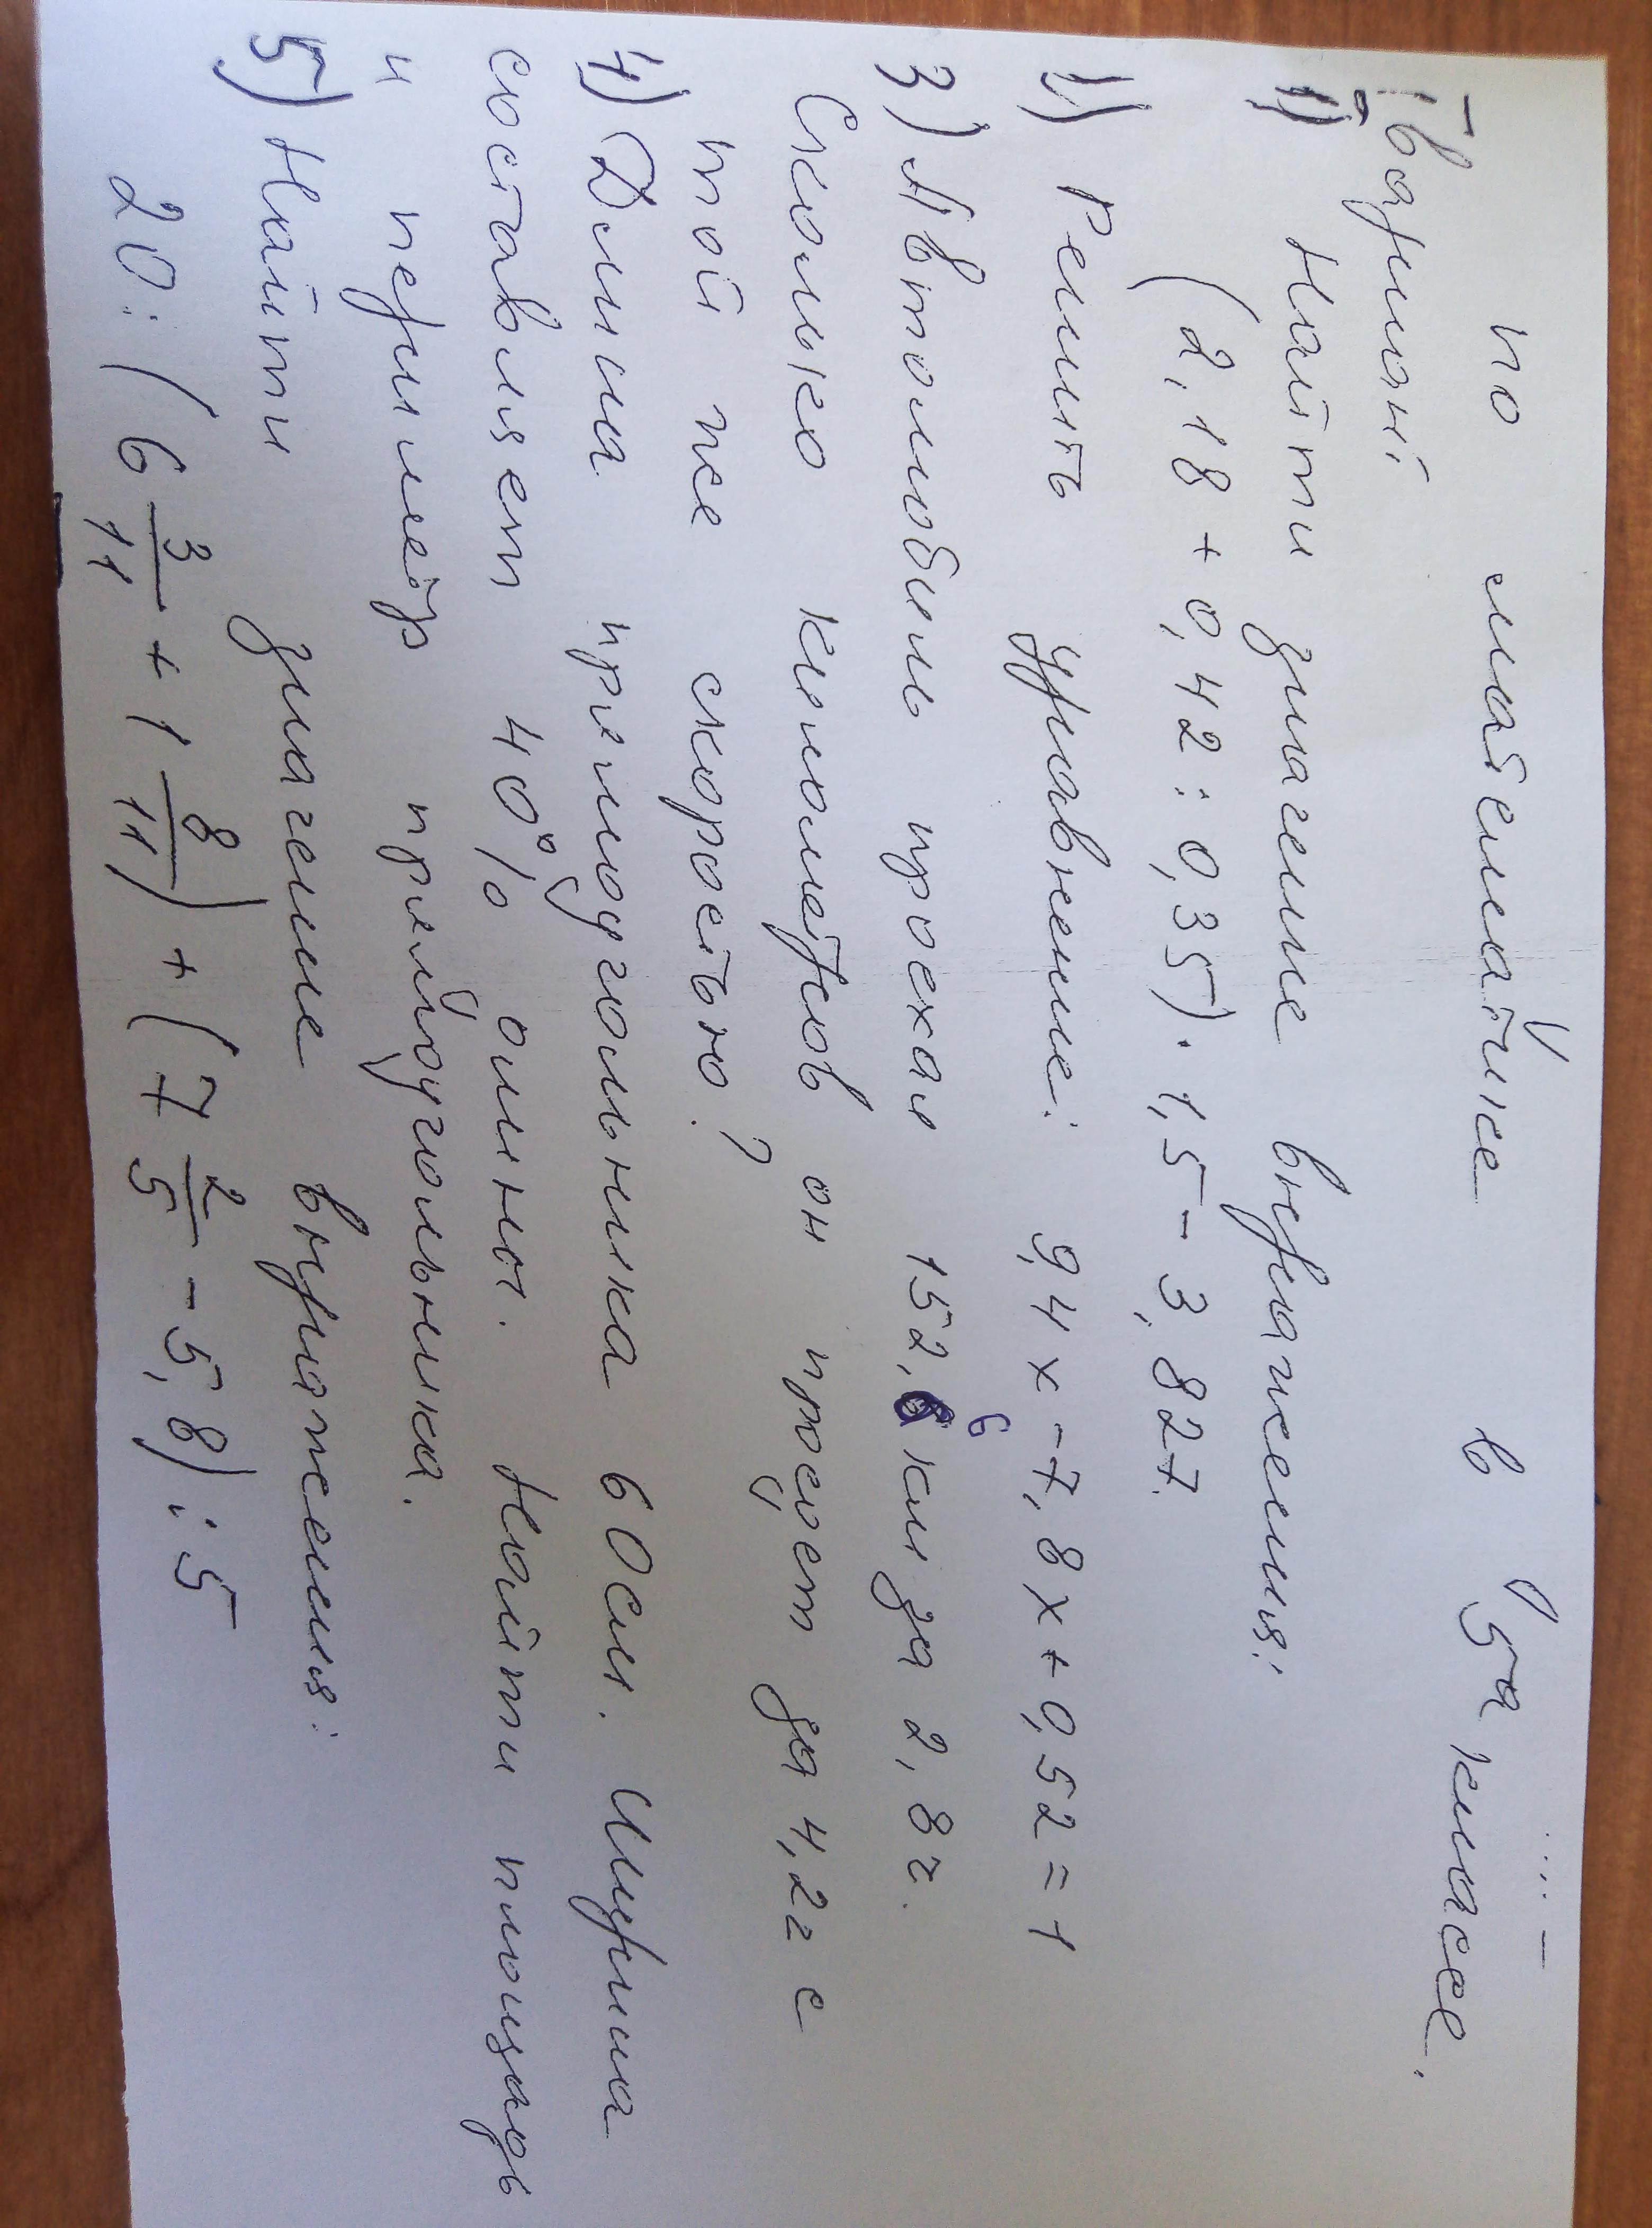 по математике в 5а классе.
I вариант
1) Найти значение выражения:
(2,18 + 0,42 : 0,35) · 1,5 - 3,827.
Решить уравнение: 9,4x - 7,8x + 0,52 = 1
3) Автомобиль проехал 152,6 км за 2,8 ч.
Сколько километров он проедет за 4,2 ч с
той же скоростью?
4) Длина прямоугольника 60 см. Ширина
составляет 40% длины. Найти площадь
и периметр прямоугольника.
5) Найти значение выражения:
20 : (6 3/11 + 1 8/11) + (7 2/5 - 5,8) : 5